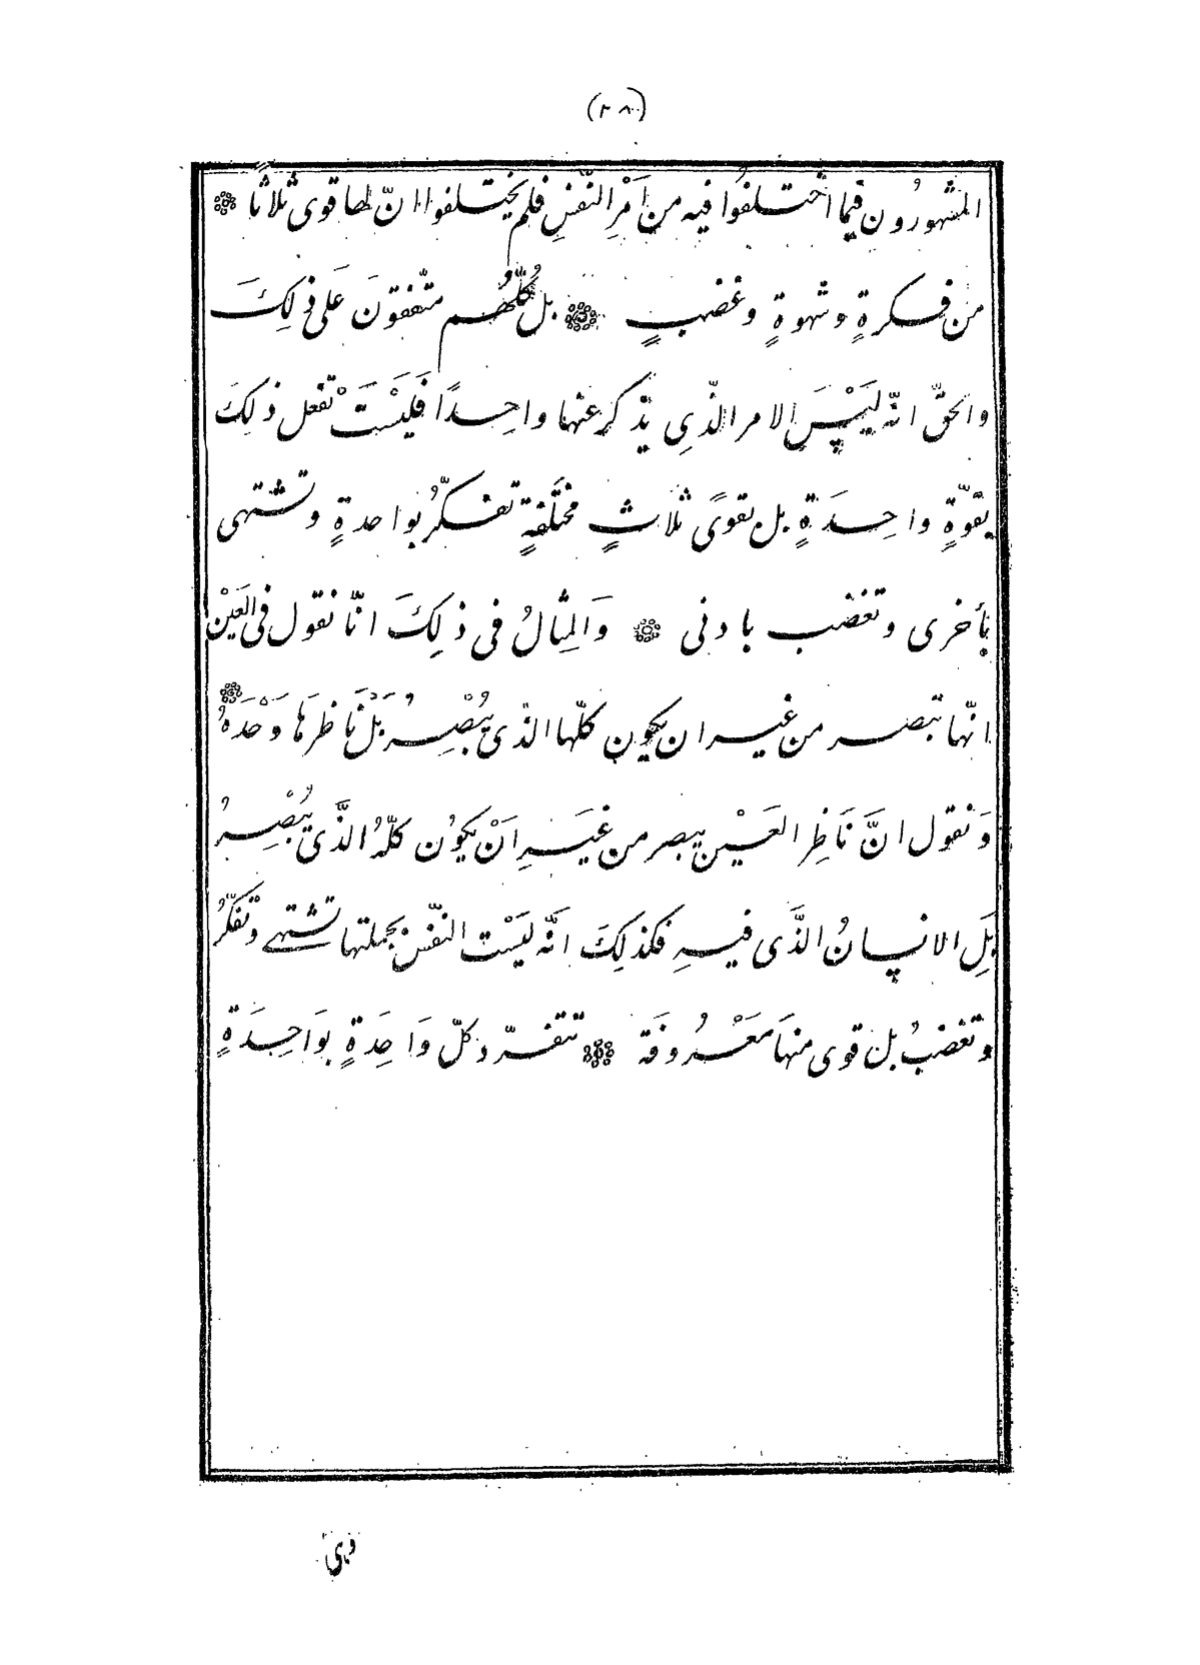 (٢٨)
المشهورُون فيما اختلفُوا فيه من اَمْرِ النّفسِ فلم يختلفوا انّ لها قوى ثلاثا ۞
من فكرةٍ وشهوةٍ وغضبٍ ۞ بل كُلُّهُم متّفقونَ عَلى ذٰلِكَ
والحقّ انّه لَيْسَ الامر الّذِى يذكر عنها واحِدًا فَلَيْسَتْ تفعل ذلِكَ
بقوّةٍ واحِدَةٍ بل بقوىً ثلاثٍ مختَلفةٍ تفكّرُ بواحدةٍ وتشتهى
بأخرى وتغضب باونى ۞ وَالمِثالُ فى ذلِكَ انّا نقول فى العَيْن
انّها تبصر من غير ان يكون كلّها الذّى يُبْصِرُ بَلْ نَاظرَهَا وَحْدَهُ ۞
وَنقول انَّ نَاظِر العَيْن يبصر من غَيَرِ اَنْ يكوُن كلّهُ الذَّى يُبْصِرُ
بَلِ الانسانُ الذَّى فيهِ فكذلِكَ اَنَّه ليَسْت النفّس بجملتها تشتهے وتفْكّرُ
وتغضبُ بل قوى منهاَ مَعْرُوفَة ۞ تتفرّد كلّ وَاحِدةٍ بوَاحِدَةٍ
وہی